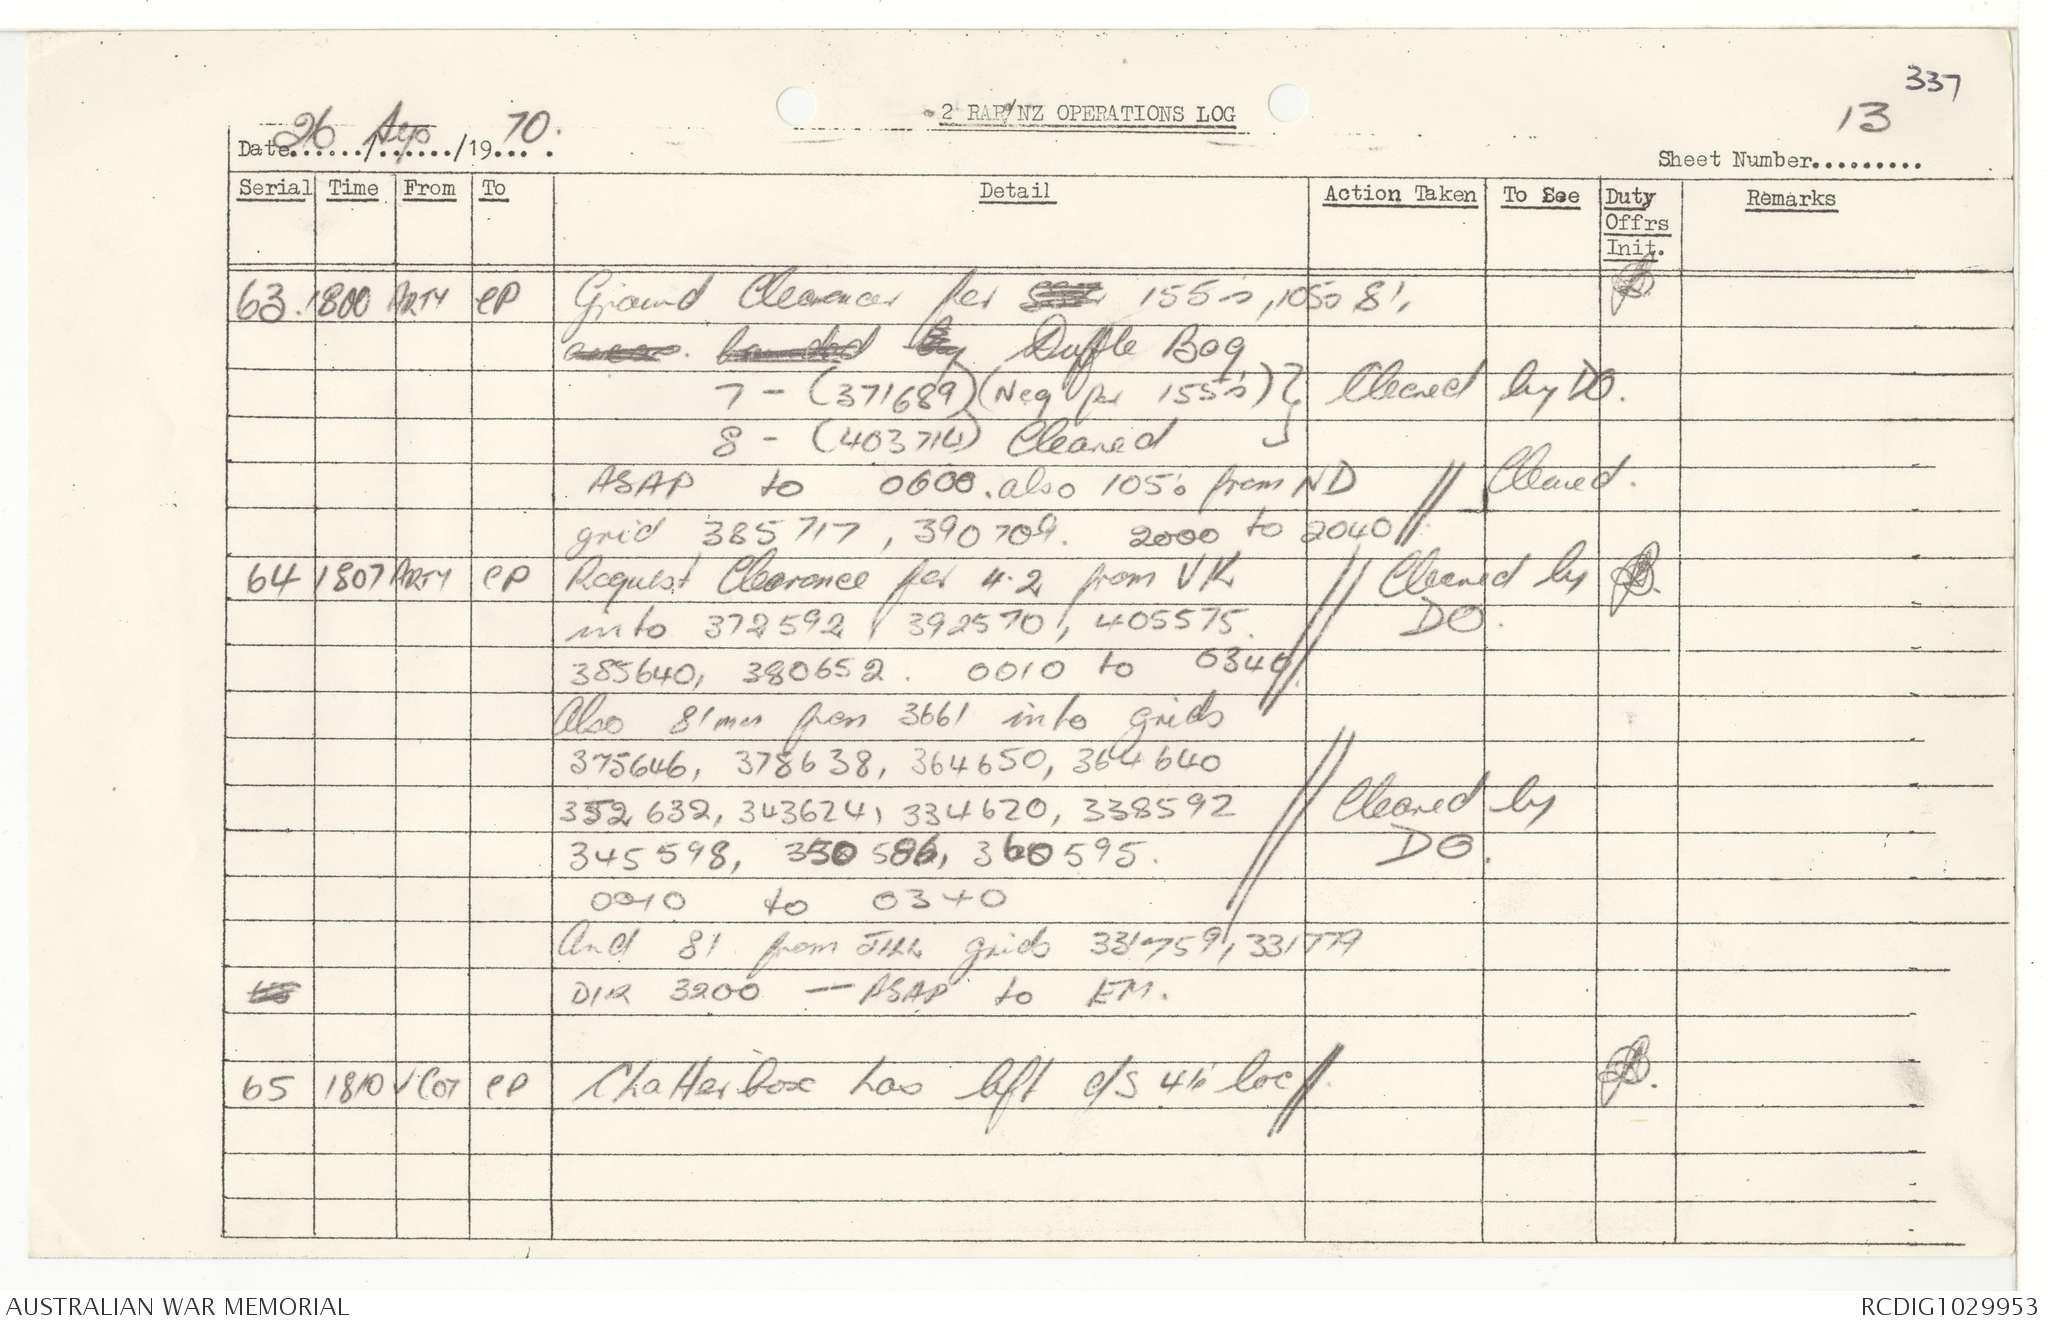 337
2 RAR/NZ OPERATIONS LOG
13
Date 26 / Sep / 19 70.
Sheet Number.........
Serial Time From To Detail Action Taken To See Duty Offrs Init. Remarks
63. 1800 ARTY CP Ground Clearances for 155's, 105s 81,
Duffle Bag
7 - (371689) (Neg for 155's) } Cleared by DO.
8 - (403714) Cleared
ASAP to 0600. also 105's from ND // Cleared.
grid 385717, 390709. 2000 to 2040
64 1807 ARTY CP Request Clearance for 4.2 from VK // Cleared by
into 372592, 392570, 405575. DO.
385640, 380652. 0010 to 0340
Also 81mm from 3661 into grids
375646, 378638, 364650, 364640
352632, 343624, 334620, 338592 // Cleared by
345598, 350586, 360595. DO.
0010 to 0340
And 81 from JILL grids 331759, 331779
DIR 3200 — ASAP to EM.
65 1810 V Coy CP Chatterbox has left c/s 41's loc //
AUSTRALIAN WAR MEMORIAL
RCDIG1029953